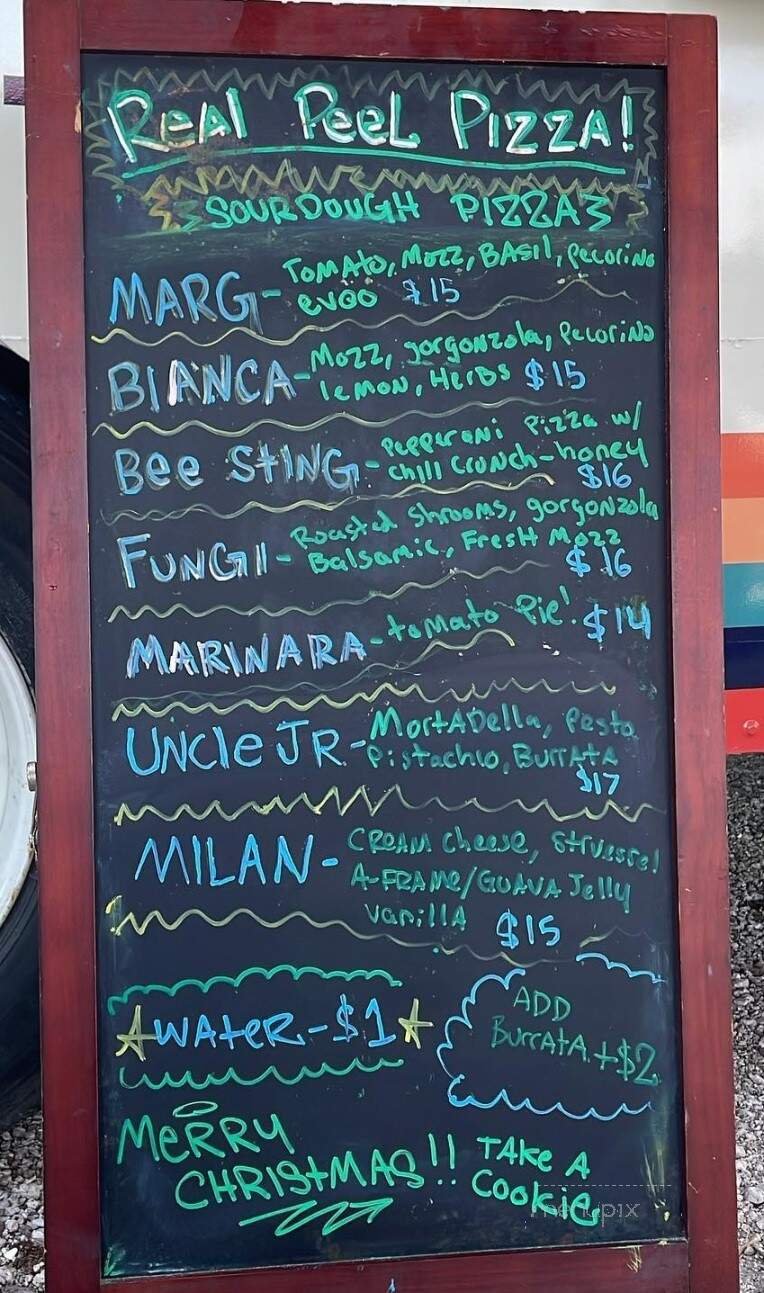 Real Peel Pizza!
SOURDOUGH PIZZAS
MARG - Tomato, Mozz, Basil, pecorino
evoo $15
BIANCA - Mozz, gorgonzola, pecorino
lemon, Herbs $15
Bee STING - pepperoni pizza w/
chili crunch-honey
$16
FUNGII - Roasted shrooms, gorgonzola
Balsamic, Fresh Mozz
$16
MARINARA - tomato Pie! $14
UNCle JR - MortADella, pesto
pistachio, BurrAtA
$17
MILAN - CREAM cheese, struessel
A-FRAME/GUAVA Jelly
VanillA $15
WAteR - $1
ADD
BurrAtA +$2
MeRRy
CHRIStMAS!!
TAke A
Cookie
menupix